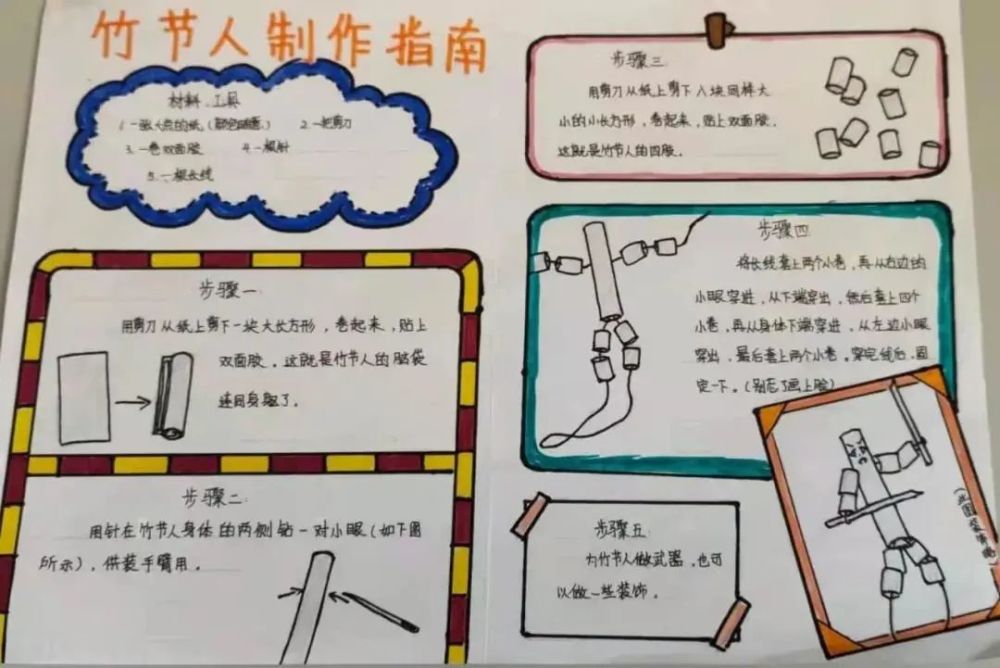 竹节人制作指南
材料、工具
1.一张大点的纸（颜色随意） 2.一把剪刀
3.一卷双面胶 4.一根针
5.一根长线
步骤一
用剪刀从纸上剪下一块大长方形，卷起来，贴上
双面胶。这就是竹节人的脑袋
连同身躯了。
步骤二
用针在竹节人身体的两侧钻一对小眼（如下图
所示），供装手臂用。
步骤三
用剪刀从纸上剪下八块同样大
小的小长方形，卷起来，贴上双面胶。
这就是竹节人的四肢。
步骤四
将长线套上两个小卷，再从右边的
小眼穿进，从下端穿出，然后套上四个
小卷，再从身体下端穿进，从左边小眼
穿出，最后套上两个小卷。穿完线后，固
定一下。（别忘了画上脸）
步骤五
为竹节人做武器，也可
以做一些装饰。